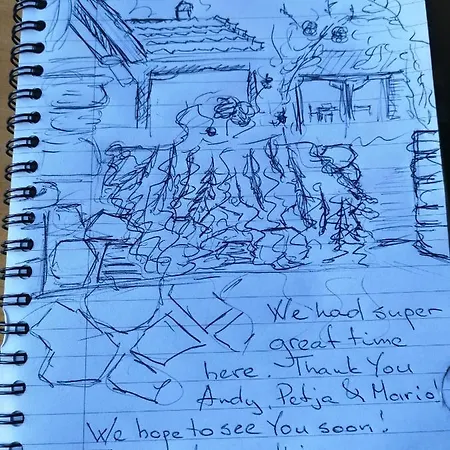 We had super
great time
here. Thank You
Andy, Petja & Mario!
We hope to see You soon!